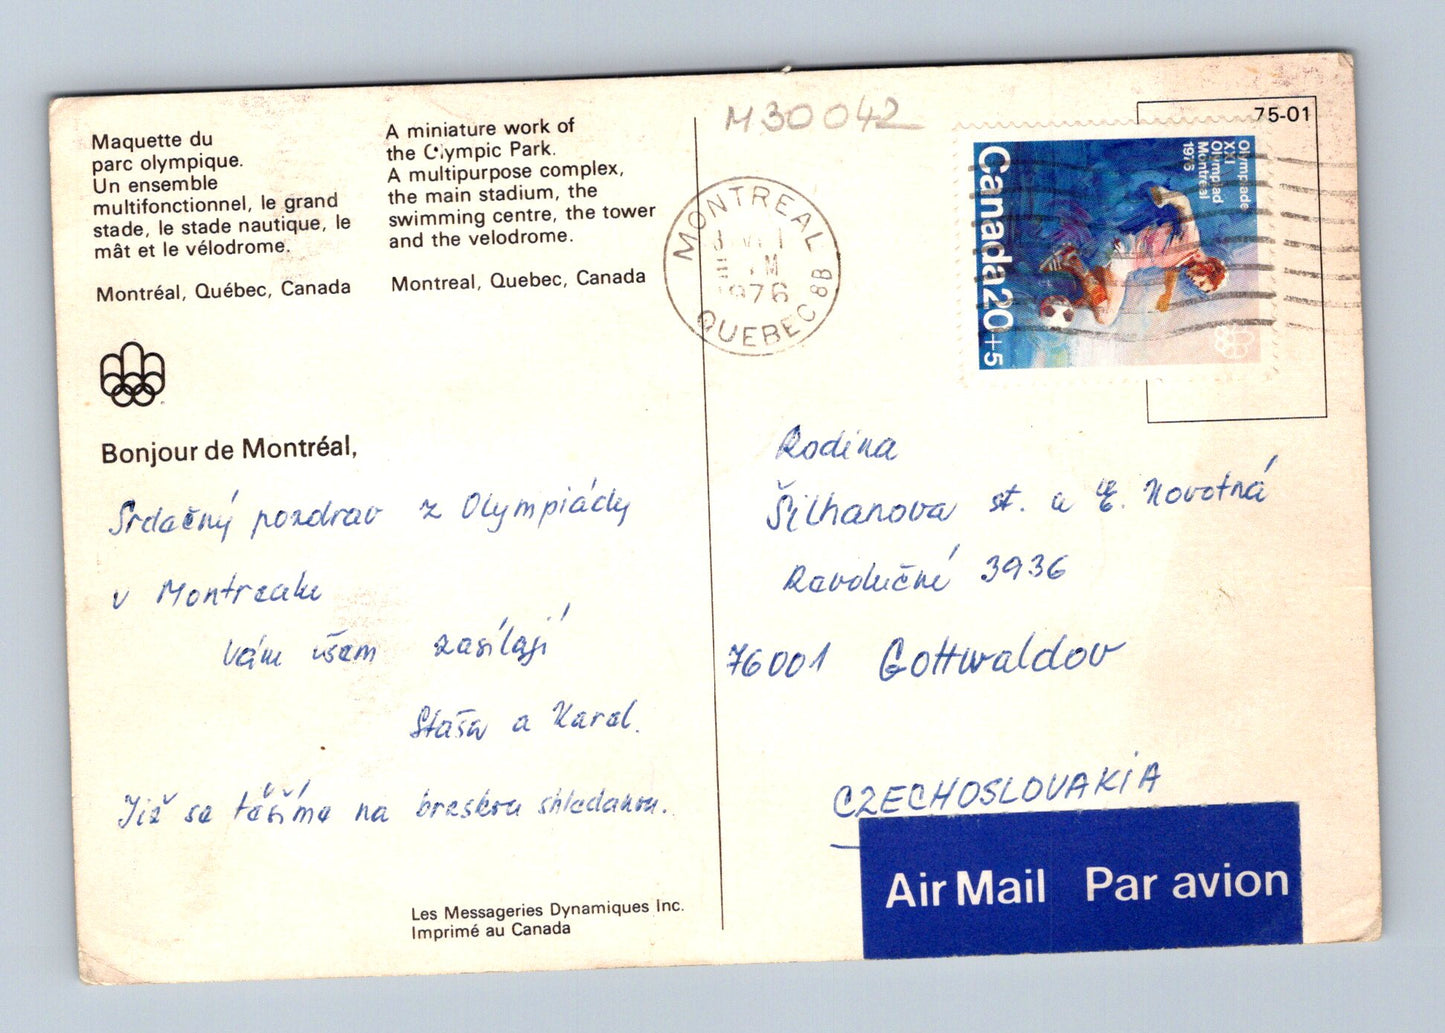 Maquette du
parc olympique.
Un ensemble
multifonctionnel, le grand
stade, le stade nautique, le
mât et le vélodrome.
Montréal, Québec, Canada
A miniature work of
the Olympic Park.
A multipurpose complex,
the main stadium, the
swimming centre, the tower
and the velodrome.
Montreal, Quebec, Canada
Bonjour de Montréal,
Srdačný pozdrav z Olympiády
v Montrealu
Vám všem zasílají
Staša a Karel.
Již se těšíme na brzskou shledanou.
Les Messageries Dynamiques Inc.
Imprimé au Canada
M30042
MONTREAL
1976
QUEBEC 8B
75-01
Olympiade
XXI
Olympiad
Montréal
1976
Canada 20+5
Rodina
Šilhanova st. a E. Novotná
Revoluční 3936
76001 Gottwaldov
CZECHOSLOVAKIA
Air Mail Par avion